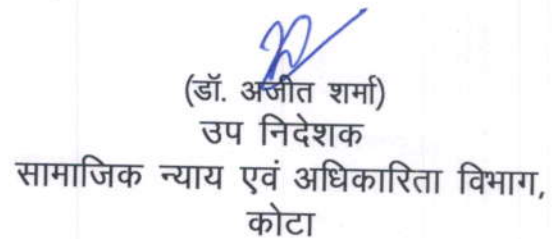 (डॉ. अजीत शर्मा)
उप निदेशक
सामाजिक न्याय एवं अधिकारिता विभाग,
कोटा